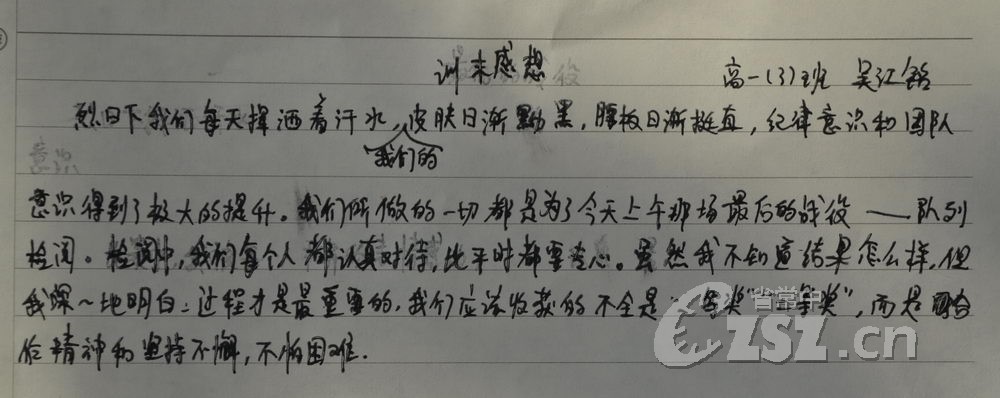 训来感想
高一(3)班 吴江铭
烈日下我们每天挥洒着汗水,我们的皮肤日渐黝黑,腰板日渐挺直,纪律意识和团队
意识得到了极大的提升。我们所做的一切都是为了今天上午那场最后的战役——队列
检阅。检阅中,我们每个人都认真对待,比平时都要专心。虽然我不知道结果怎么样,但
我深深地明白:过程才是最重要的,我们应该收获的不全是"一等奖""二等奖",而是团结合
作精神和坚持不懈,不怕困难.
省常中
CZSZ.cn